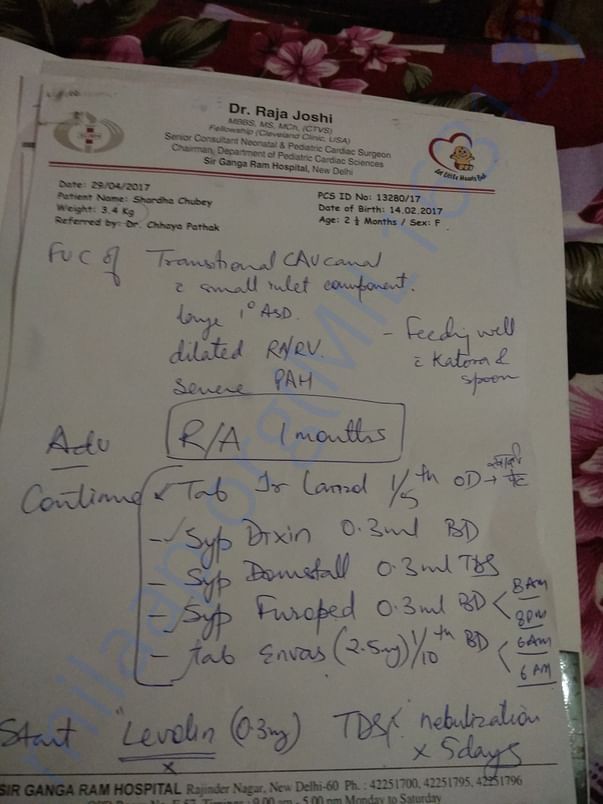 Dr. Raja Joshi
MBBS, MS, MCh, (CTVS)
Fellowship (Cleveland Clinic, USA)
Senior Consultant Neonatal & Pediatric Cardiac Surgeon
Chairman, Department of Pediatric Cardiac Sciences
Sir Ganga Ram Hospital, New Delhi
Date: 29/04/2017
PCS ID No: 13280/17
Patient Name: Shardha Chubey
Date of Birth: 14.02.2017
Weight: 3.4 Kg
Age: 2 ½ Months / Sex: F
Referred by: Dr. Chhaya Pathak
FUC of Transitional CAVcanal
c small inlet component.
large 1° ASD.
dilated RA/RV.
Severe PAH
- Feeding well
c Katora &
spoon
Adv
R/A 1 months
Continue
Tab 1/5th OD →
- Syp Dixin 0.3ml BD
- Syp Domstall 0.3ml TDS
- Syp Furoped 0.3ml BD < 8AM
8PM
- tab Envas (2.5mg) 1/10th BD < 6AM
6 AM
Start Levolin (0.3mg) TDS nebulization
x 5days
SIR GANGA RAM HOSPITAL Rajinder Nagar, New Delhi-60 Ph. : 42251700, 42251795, 42251796
9.00 am - 5.00 pm Monday to Saturday
milaap.org